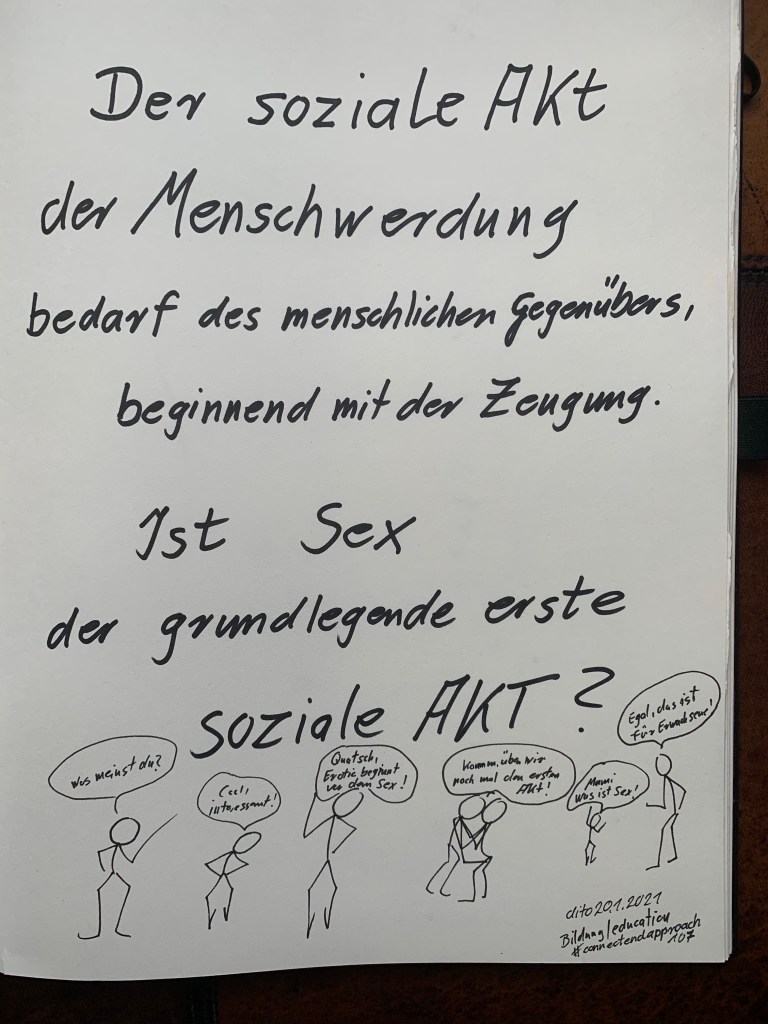 Der soziale AKt
der Menschwerdung
bedarf des menschlichen Gegenübers,
beginnend mit der Zeugung.
Ist Sex
der grundlegende erste
soziale AKT?
Was meinst du?
Cool,
interessant!
Quatsch,
Erotic beginnt
vor dem Sex!
Komm, üben wir
noch mal den ersten
Akt!
Mami
was ist Sex!
Egal, das ist
für Erwachsene!
dito 20.1.2021
Bildung/education
#connectedapproach
107